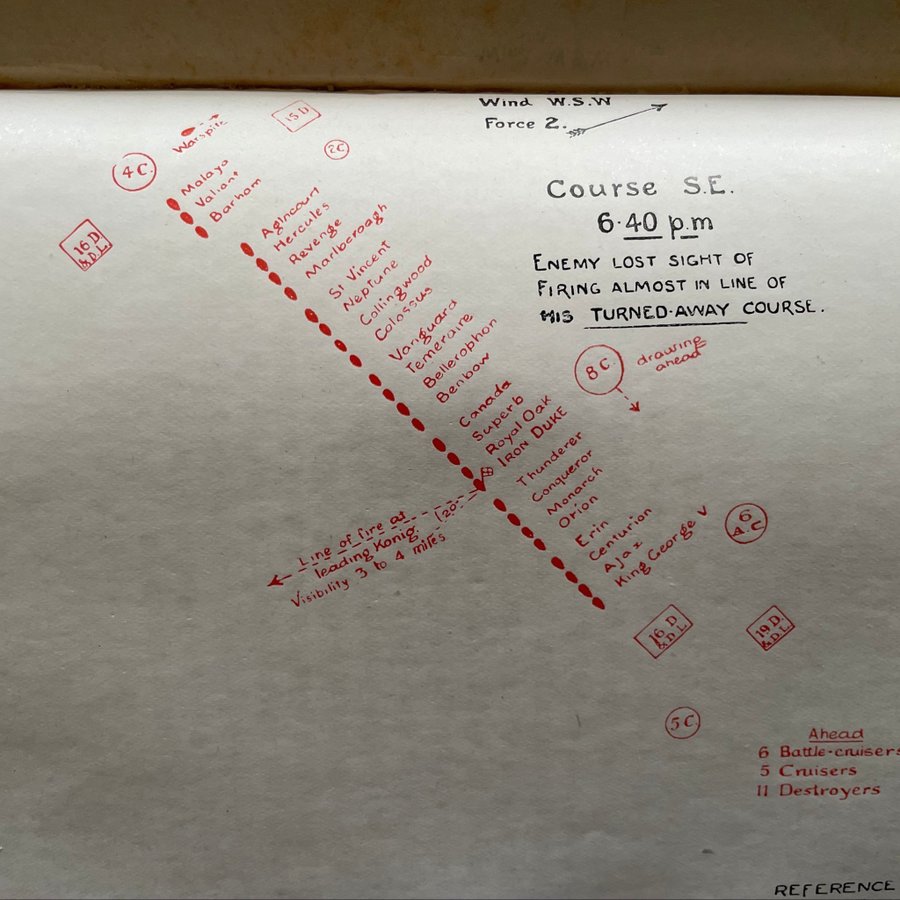 Wind W.S.W
Force 2.
Course S.E.
6·40 p.m
ENEMY LOST SIGHT OF
FIRING ALMOST IN LINE OF
HIS TURNED-AWAY COURSE.
15 D
Warspite
2C
4 C.
16 D
& D.L.
Malaya
Valiant
Barham
Agincourt
Hercules
Revenge
Marlborough
St Vincent
Neptune
Collingwood
Colossus
Vanguard
Temeraire
Bellerophon
Benbow
8 C.
drawing
ahead
Canada
Superb
Royal Oak
IRON DUKE
Thunderer
Conqueror
Monarch
Orion
Erin
Centurion
Ajax
King George V
6
A.C
Line of fire at
leading Konig.
Visibility 3 to 4 miles
120
16 D
& D.L.
19 D.
& D.L.
5 C.
Ahead
6 Battle-cruisers
5 Cruisers
11 Destroyers
REFERENCE